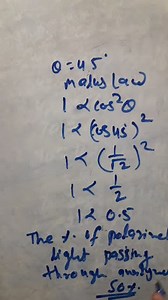 θ = 45°
malus law
I α cos²θ
I α (cos 45)²
I α (1/√2)²
I α 1/2
I α 0.5
The % of polarised
light passing
through analyser
50%